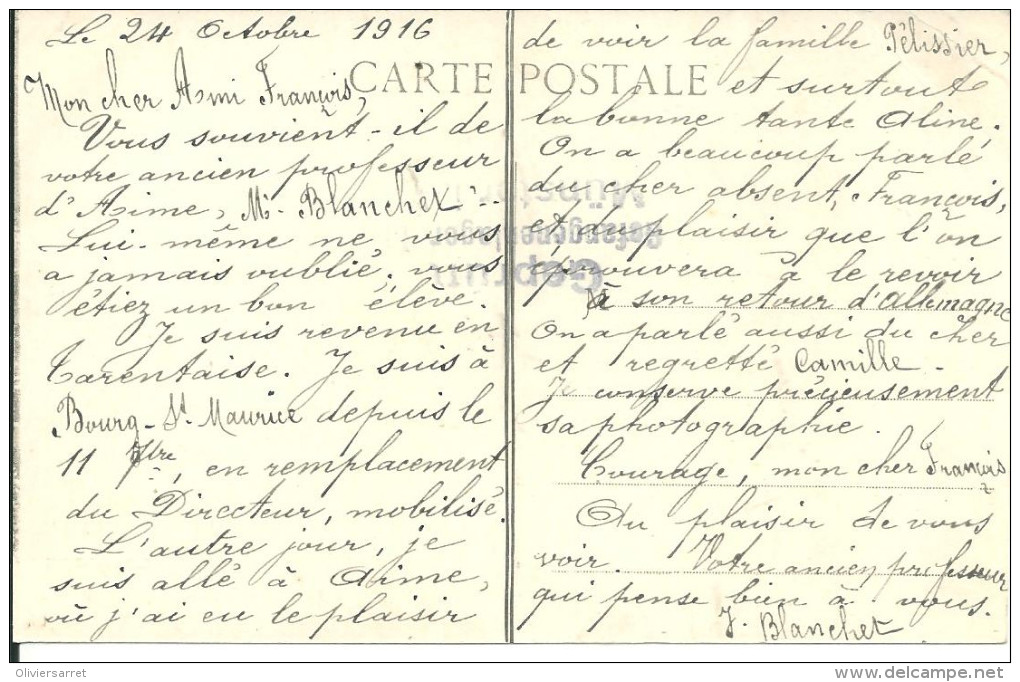 Le 24 Octobre 1916
CARTE POSTALE
Mon cher Ami François,
Vous souvient-il de
votre ancien professeur
d'Aime, Mr. Blanchet?
Lui-même ne vous
a jamais oublié, vous
étiez un bon élève.
Je suis revenu en
Tarentaise. Je suis à
Bourg-St Maurice depuis le
11 7bre, en remplacement
du Directeur, mobilisé.
L'autre jour, je
suis allé à Aime,
où j'ai eu le plaisir
de voir la famille Pélissier,
et surtout
la bonne tante Aline.
On a beaucoup parlé
du cher absent, François,
et du plaisir que l'on
éprouvera à le revoir
à son retour d'Allemagne
On a parlé aussi du cher
et regretté Camille.
Je conserve précieusement
sa photographie.
Courage, mon cher François
Au plaisir de vous
voir. Votre ancien professeur
qui pense bien à vous.
J. Blanchet
Geprüft
Gefangenenlager
Oliviersarret
www.delcampe.net